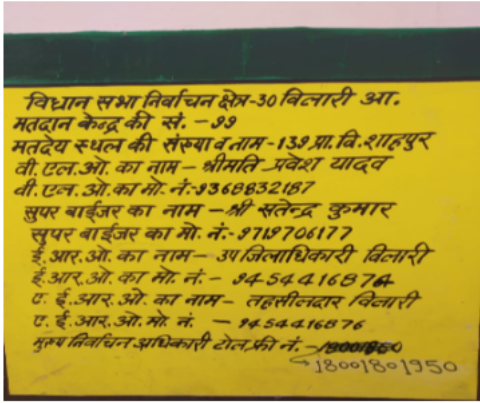 विधान सभा निर्वाचन क्षेत्र-30 विलारी आ.
मतदान केन्द्र की सं. -99
मतदेय स्थल की संख्या व नाम -139 प्रा. वि. शाहपुर
वी. एल. ओ. का नाम - श्रीमति प्रवेश यादव
वी. एल. ओ. का मो. नं:-9368832187
सुपर बाईजर का नाम - श्री सतेन्द्र कुमार
सुपर बाईजर का मो. नं:-9719706177
ई. आर. ओ. का नाम - उप जिलाधिकारी विलारी
ई. आर. ओ. का मो. नं. - 9454416874
ए. ई. आर. ओ. का नाम - तहसीलदार विलारी
ए. ई. आर. ओ. मो. नं. - 9454416876
मुख्य निर्वाचन अधिकारी टोल फ्री नं. -
18001801950